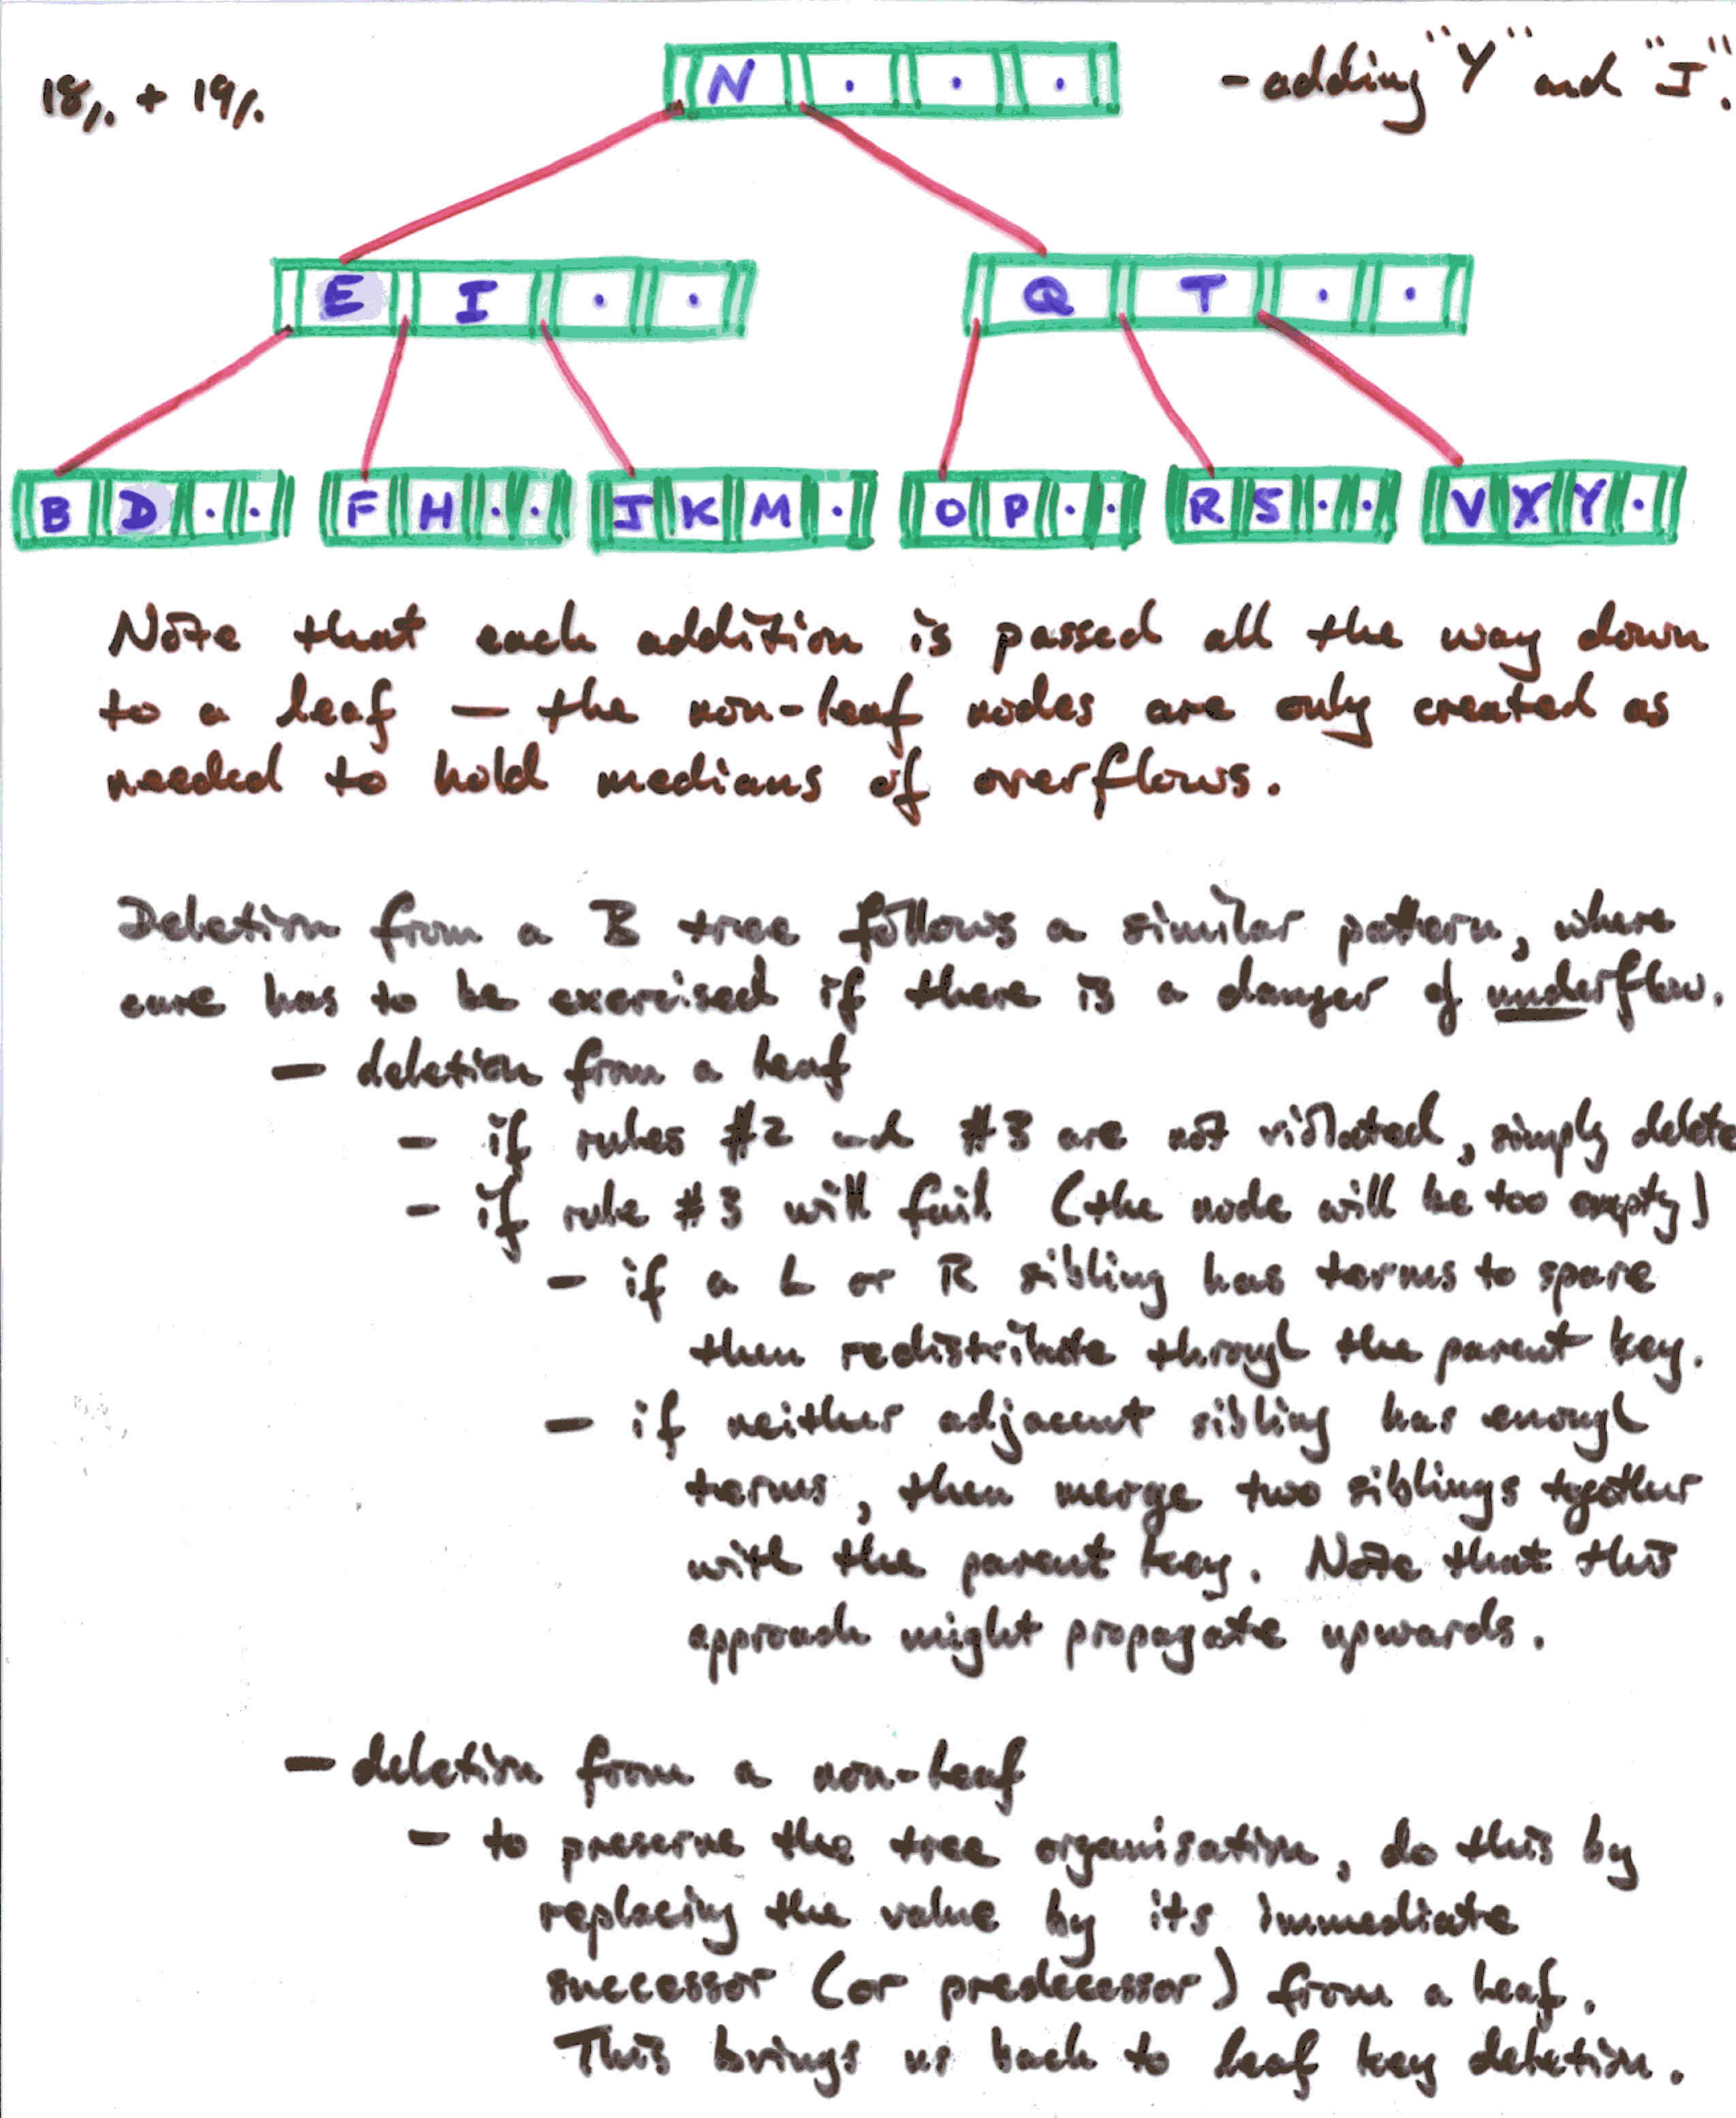 18/. + 19/.
N . . .
- adding "Y" and "J".
E I . .
Q T . .
B D . .
F H . .
J K M .
O P . .
R S . .
V X Y .
Note that each addition is passed all the way down
to a leaf — the non-leaf nodes are only created as
needed to hold medians of overflows.
Deletion from a B tree follows a similar pattern, where
care has to be exercised if there is a danger of underflow.
— deletion from a leaf
- if rules #2 and #3 are not violated, simply delete
- if rule #3 will fail (the node will be too empty)
- if a L or R sibling has terms to spare
then redistribute through the parent key.
- if neither adjacent sibling has enough
terms, then merge two siblings together
with the parent key. Note that this
approach might propagate upwards.
— deletion from a non-leaf
- to preserve the tree organisation, do this by
replacing the value by its immediate
successor (or predecessor) from a leaf.
This brings us back to leaf key deletion.